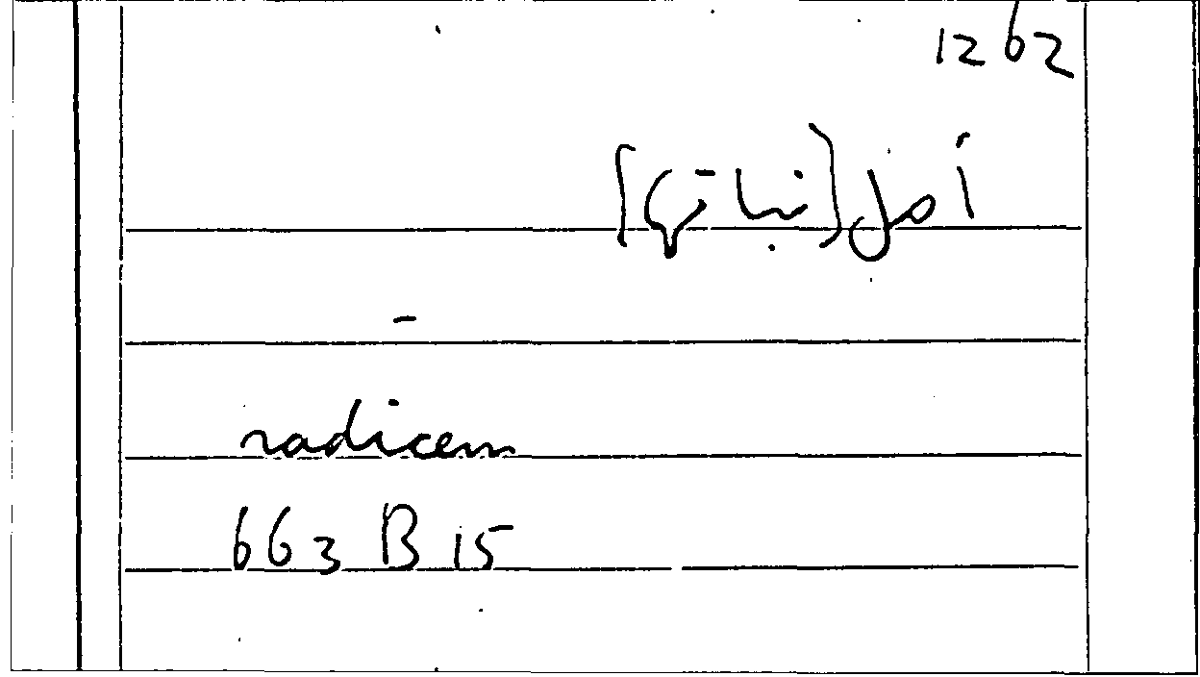 1262
أصل [نباتي]
-
radicem
663 B 15